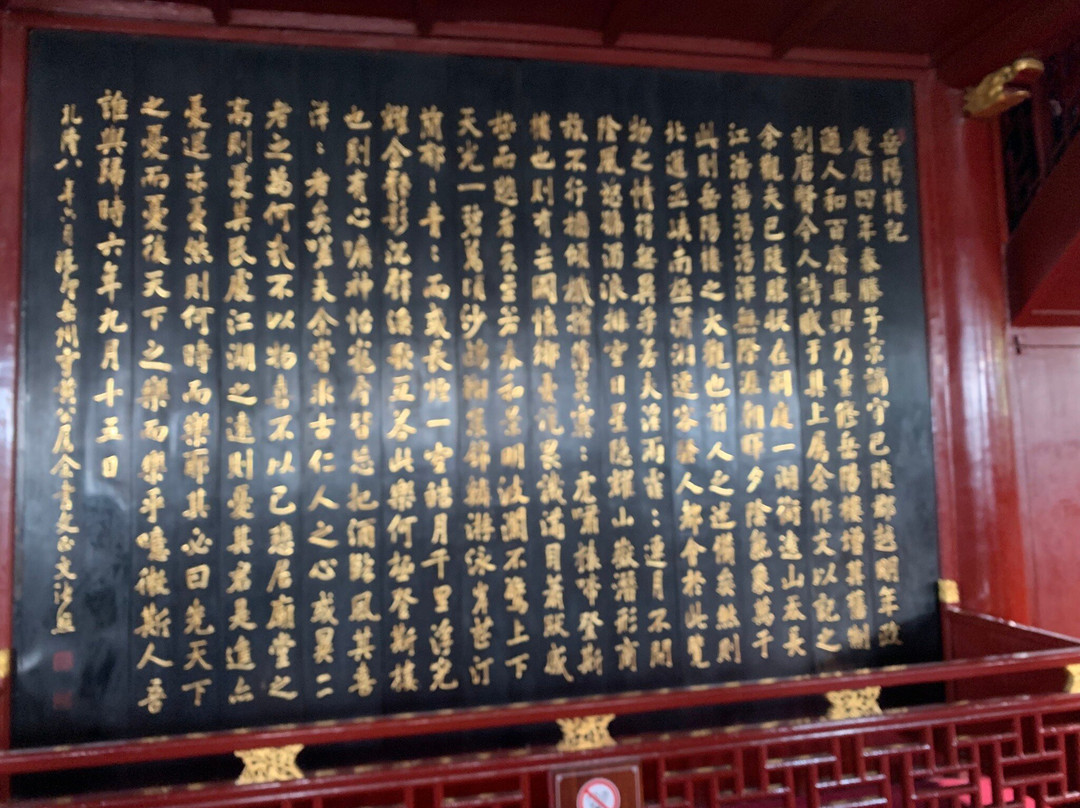 岳陽樓記
慶曆四年春滕子京謫守巴陵郡越明年政
通人和百廢具興乃重修岳陽樓增其舊制
刻唐賢今人詩賦于其上屬余作文以記之
余觀夫巴陵勝狀在洞庭一湖銜遠山吞長
江浩浩蕩蕩渾無際涯朝暉夕陰氣象萬千
此則岳陽樓之大觀也前人之述備矣然則
北通巫峽南極瀟湘遷客騷人會於此覽
物之情得無異乎若夫淫雨霏:連月不開
陰風怒號濁浪排空日星隱耀山嶽潛形商
旅不行檣傾楫摧薄莫冥:虎嘯猿啼登斯
樓也則有去國懷鄉憂讒畏譏滿目蕭感
極而悲者矣至若春和景明波瀾不驚上下
天光一碧萬頃沙鷗翔集錦鱗游泳岸芷汀
蘭郁:青:而或長煙一空皓月千里浮光
耀金靜影沉璧漁歌互答此樂何極登斯樓
也則有心曠神怡寵辱皆忘把酒臨風其喜
洋:者矣嗟夫余嘗求古仁人之心或異二
者之為何哉不以物喜不以己悲居廟堂之
高則憂其民處江湖之遠則憂其君是進亦
憂退亦憂然則何時而樂耶其必曰先天下
之憂而憂後天下之樂而樂乎噫微斯人吾
誰與歸時六年九月十五日
乾隆八年六月